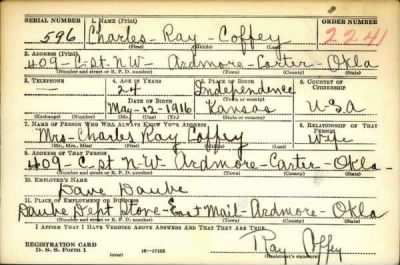 SERIAL NUMBER 1. NAME (Print) ORDER NUMBER
596 Charles - Ray - Coffey 2241
(First) (Middle) (Last)
2. ADDRESS (Print)
409 - C - St - N.W - Ardmore - Carter - Okla
(Number and street or R. F. D. number) (Town) (County) (State)
3. TELEPHONE 4. AGE IN YEARS 5. PLACE OF BIRTH 6. COUNTRY OF CITIZENSHIP
— 24 Independence
DATE OF BIRTH (Town or county)
May - 12 - 1916 Kansas U-S-A
(Exchange) (Number) (Mo.) (Day) (Yr.) (State or country)
7. NAME OF PERSON WHO WILL ALWAYS KNOW YOUR ADDRESS 8. RELATIONSHIP OF THAT PERSON
Mrs - Charles Ray Coffey Wife
(Mr., Mrs., Miss) (First) (Middle) (Last)
9. ADDRESS OF THAT PERSON
409 - C - St N-W Ardmore - Carter - Okla -
(Number and street or R. F. D. number) (Town) (County) (State)
10. EMPLOYER'S NAME
Dave Daube
11. PLACE OF EMPLOYMENT OR BUSINESS
Daube Dept Store - East Main - Ardmore - Okla
(Number and street or R. F. D. number) (Town) (County) (State)
I AFFIRM THAT I HAVE VERIFIED ABOVE ANSWERS AND THAT THEY ARE TRUE.
REGISTRATION CARD
D. S. S. Form 1 (over) 16—17105 Ray Coffey
(Registrant's signature)